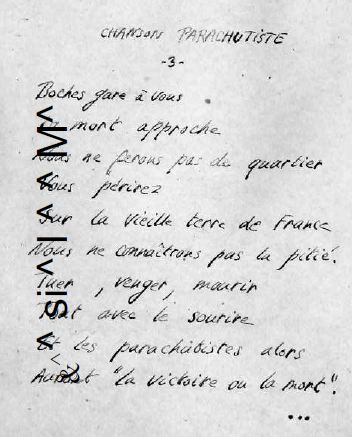 CHANSON PARACHUTISTE
-3-
Boches gare à vous
mort approche
Nous ne ferons pas de quartier
Vous périrez
Sur la vieille terre de France
Nous ne connaîtrons pas la pitié.
Tuer, venger, mourir
Tout avec le sourire
Et les parachutistes alors
Auront "la victoire ou la mort".
...